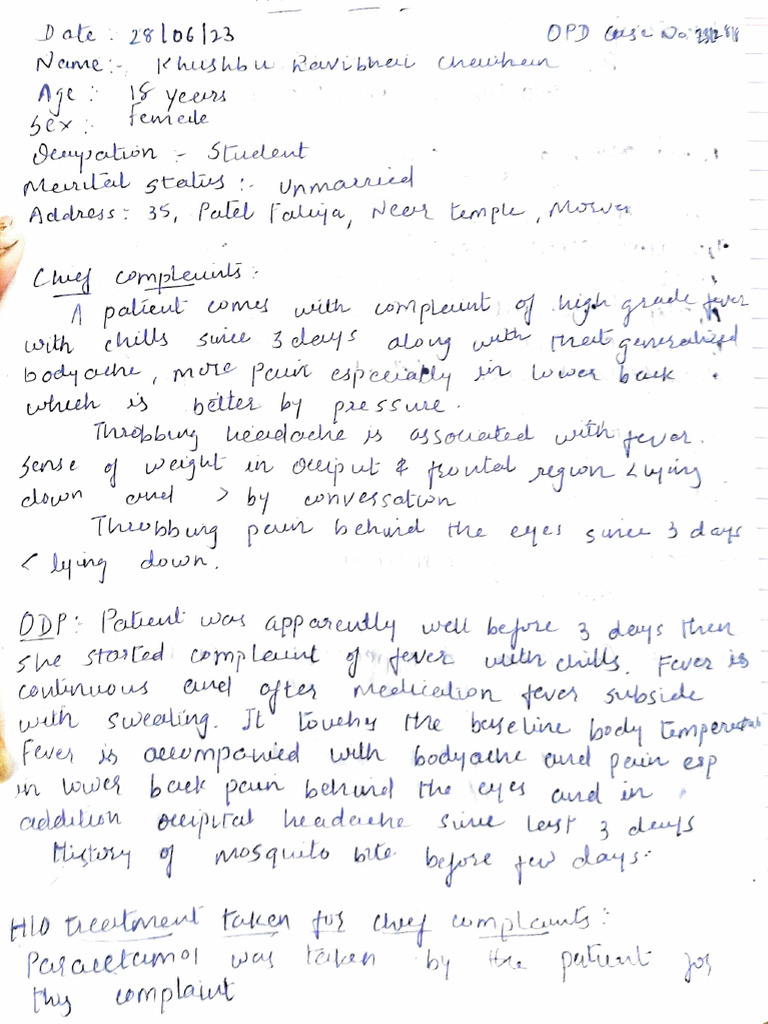 Date : 28/06/23 OPD Case No
Name:- Khushbu Ravibhai Chauhan
Age : 18 years
Sex : Female
Occupation :- Student
Marital Status :- Unmarried
Address : 35, Patel Faliya, Near temple,
Chief complaints :
A patient comes with complaint of high grade fever
with chills since 3 days along with that generalized
bodyache, more pain especially in lower back
which is better by pressure.
Throbbing headache is associated with fever.
Sense of weight in occiput & frontal region < lying
down and > by convessation
Throbbing pain behind the eyes since 3 days
< lying down.
ODP : Patient was apparently well before 3 days then
she started complaint of fever with chills. Fever is
continuous and after medication fever subside
with sweating. It touchs the baseline body temperature
Fever is accompanied with bodyache and pain esp
in lower back pain behind the eyes and in
addition occipital headache since last 3 days
History of mosquito bite before few days.
H/O treatment taken for chief complaints :
Paracetamol was taken by the patient for
this complaint